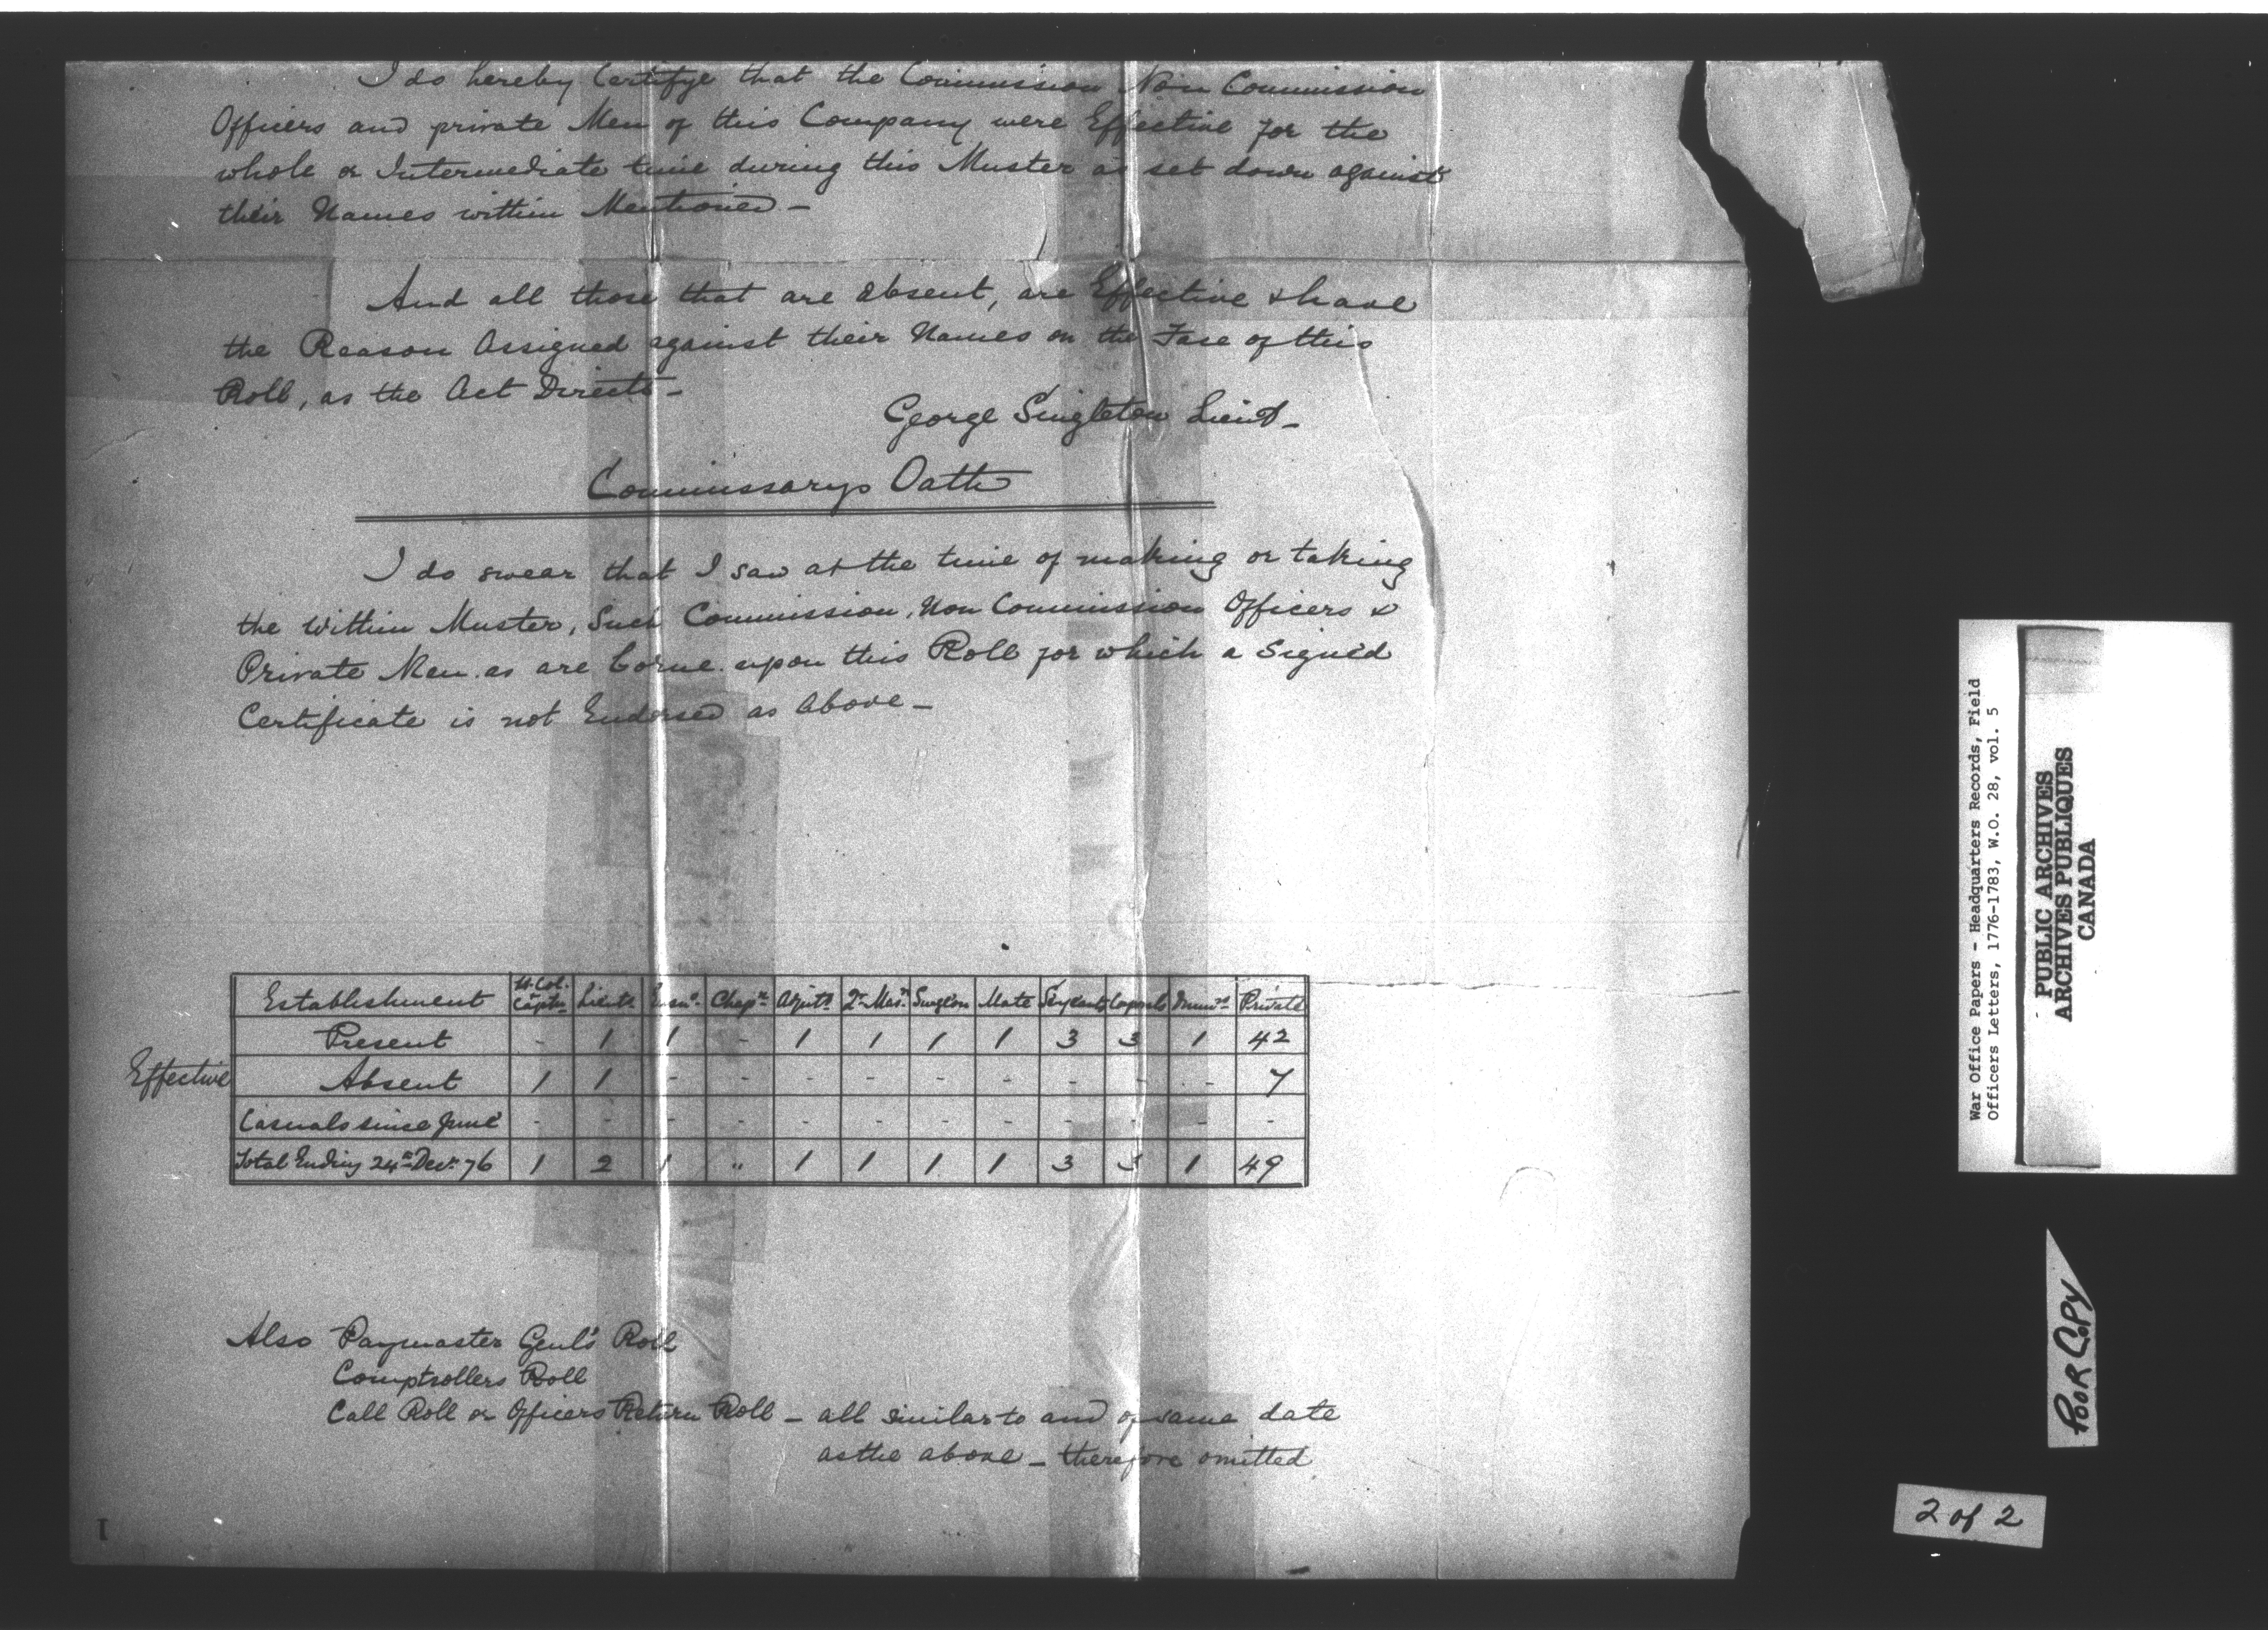 I do hereby Certifye that the Commission Non Commission
Officers and private Men of this Company were Effective for the
whole or Intermediate time during this Muster as set down against
their Names within Mentioned -
And all those that are absent, are Effective & have
the Reason Assigned against their Names on the Face of this
Roll, as the Act Directs -
George Singleton Lieut -
Commissarys Oath
I do swear that I saw at the time of making or taking
the within Muster, Such Commission, Non Commission Officers &
Private Men as are borne upon this Roll for which a Signed
Certificate is not Endorsed as Above -
Establishment Lt. Col. Captn. Lieuts. Ensn. Chapn. Adjutt. Qr. Masr. Surgeon Mate Serjeants Corporals Drumrs. Private
Present - 1 1 - 1 1 1 1 3 3 1 42
Effective
Absent 1 1 - - - - - - - - - 7
Casuals since June - - - - - - - - - - - -
Total Ending 24th Decr. 76 1 2 1 " 1 1 1 1 3 3 1 49
Also Paymaster Genl's Roll
Comptrollers Roll
Call Roll or Officers Return Roll - all similar to and of same date
as the above - therefore omitted
War Office Papers - Headquarters Records, Field
Officers Letters, 1776-1783, W.O. 28, vol. 5
PUBLIC ARCHIVES
ARCHIVES PUBLIQUES
CANADA
POOR COPY
2 of 2